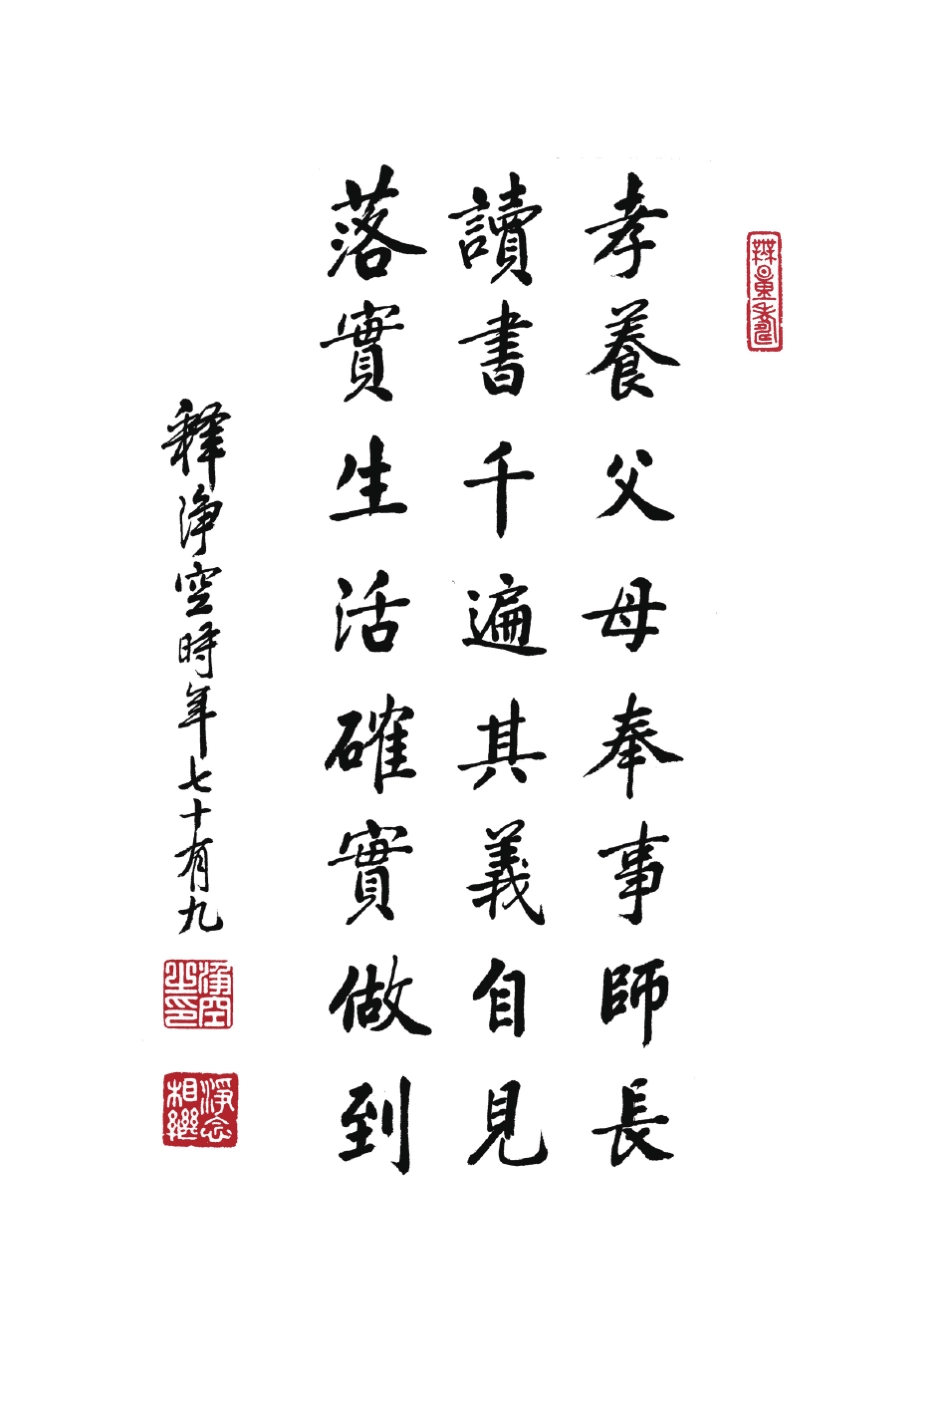 無量壽
孝養父母奉事師長
讀書千遍其義自見
落實生活確實做到
释淨空時年七十有九
淨空之印
淨念相繼